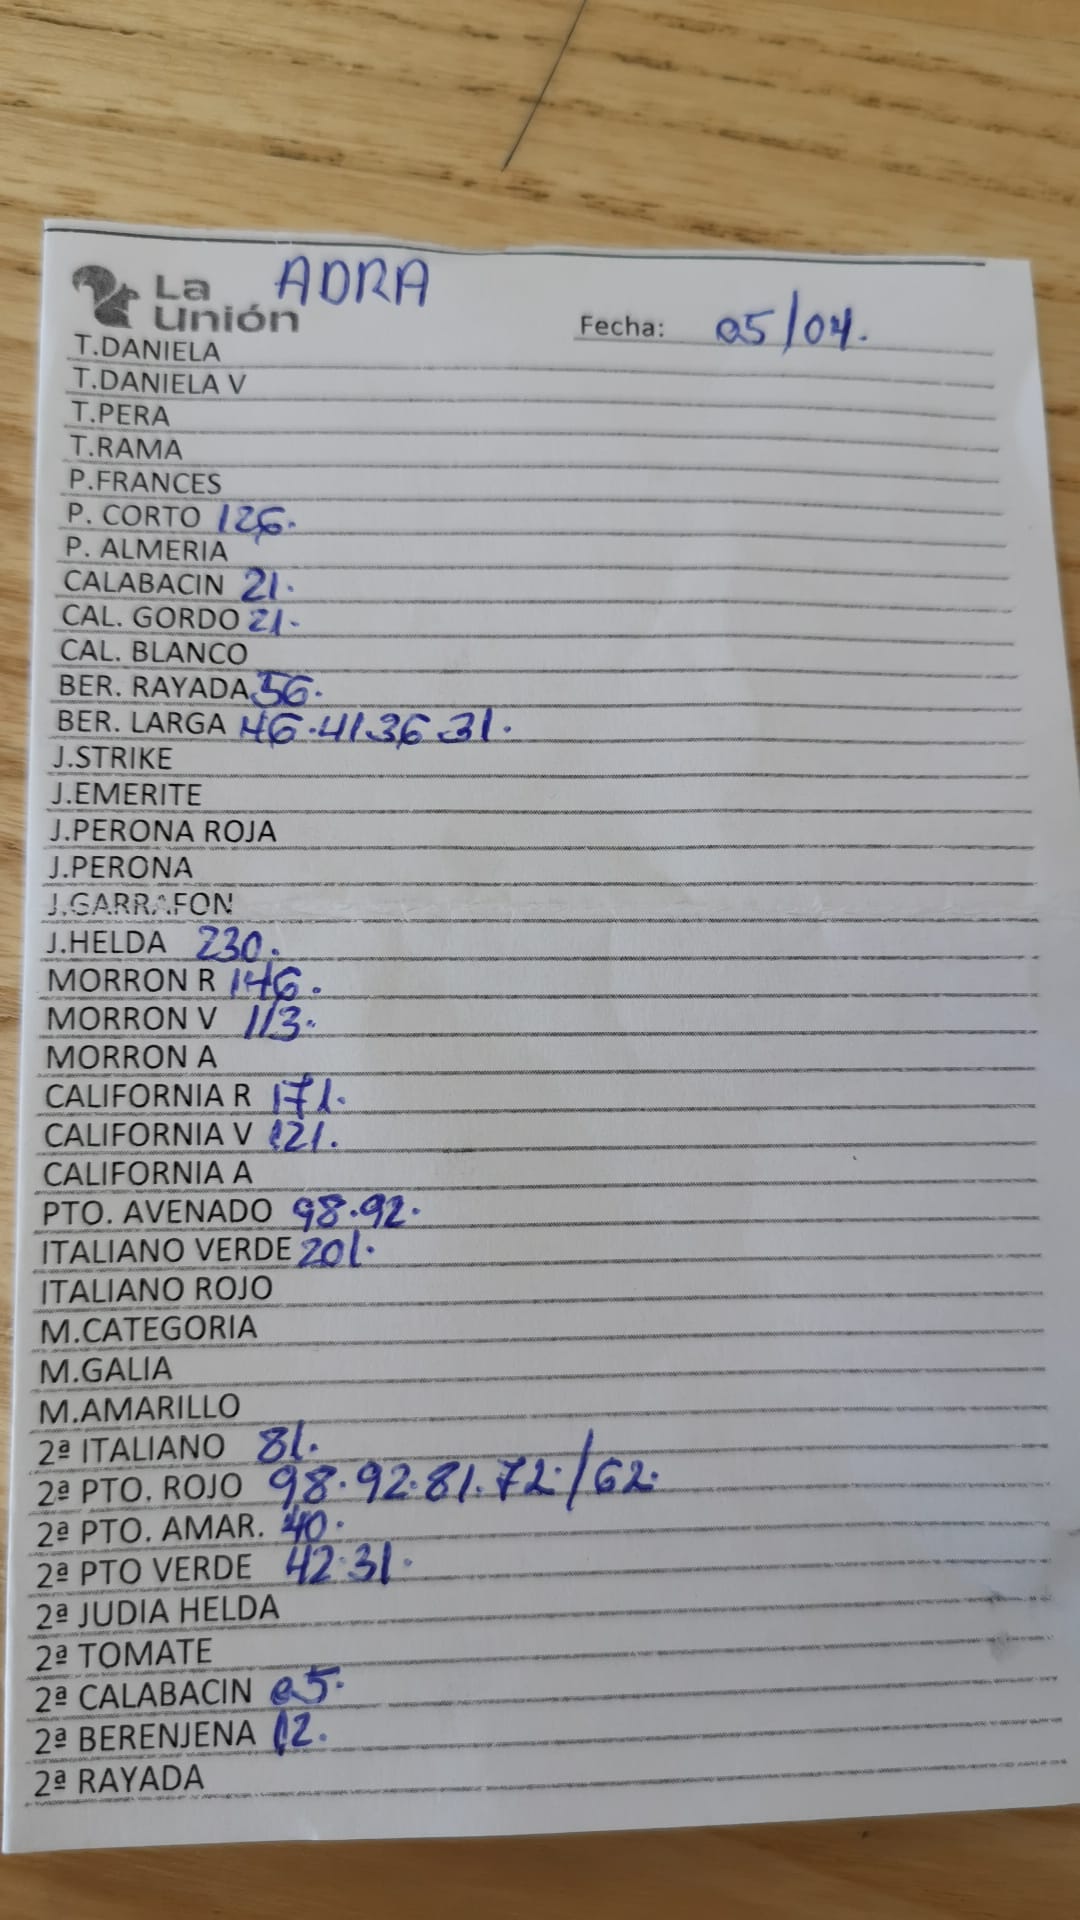 La Unión ADRA
Fecha: 05/04.
T.DANIELA
T.DANIELA V
T.PERA
T.RAMA
P.FRANCES
P. CORTO 126.
P. ALMERIA
CALABACIN 21.
CAL. GORDO 21.
CAL. BLANCO
BER. RAYADA 56.
BER. LARGA 46.41.36.31.
J.STRIKE
J.EMERITE
J.PERONA ROJA
J.PERONA
J.GARRAFON
J.HELDA 230.
MORRON R 146.
MORRON V 113.
MORRON A
CALIFORNIA R 171.
CALIFORNIA V 121.
CALIFORNIA A
PTO. AVENADO 98.92.
ITALIANO VERDE 201.
ITALIANO ROJO
M.CATEGORIA
M.GALIA
M.AMARILLO
2ª ITALIANO 81.
2ª PTO. ROJO 98.92.81.72./62.
2ª PTO. AMAR. 40.
2ª PTO VERDE 42.31.
2ª JUDIA HELDA
2ª TOMATE
2ª CALABACIN 05.
2ª BERENJENA 12.
2ª RAYADA